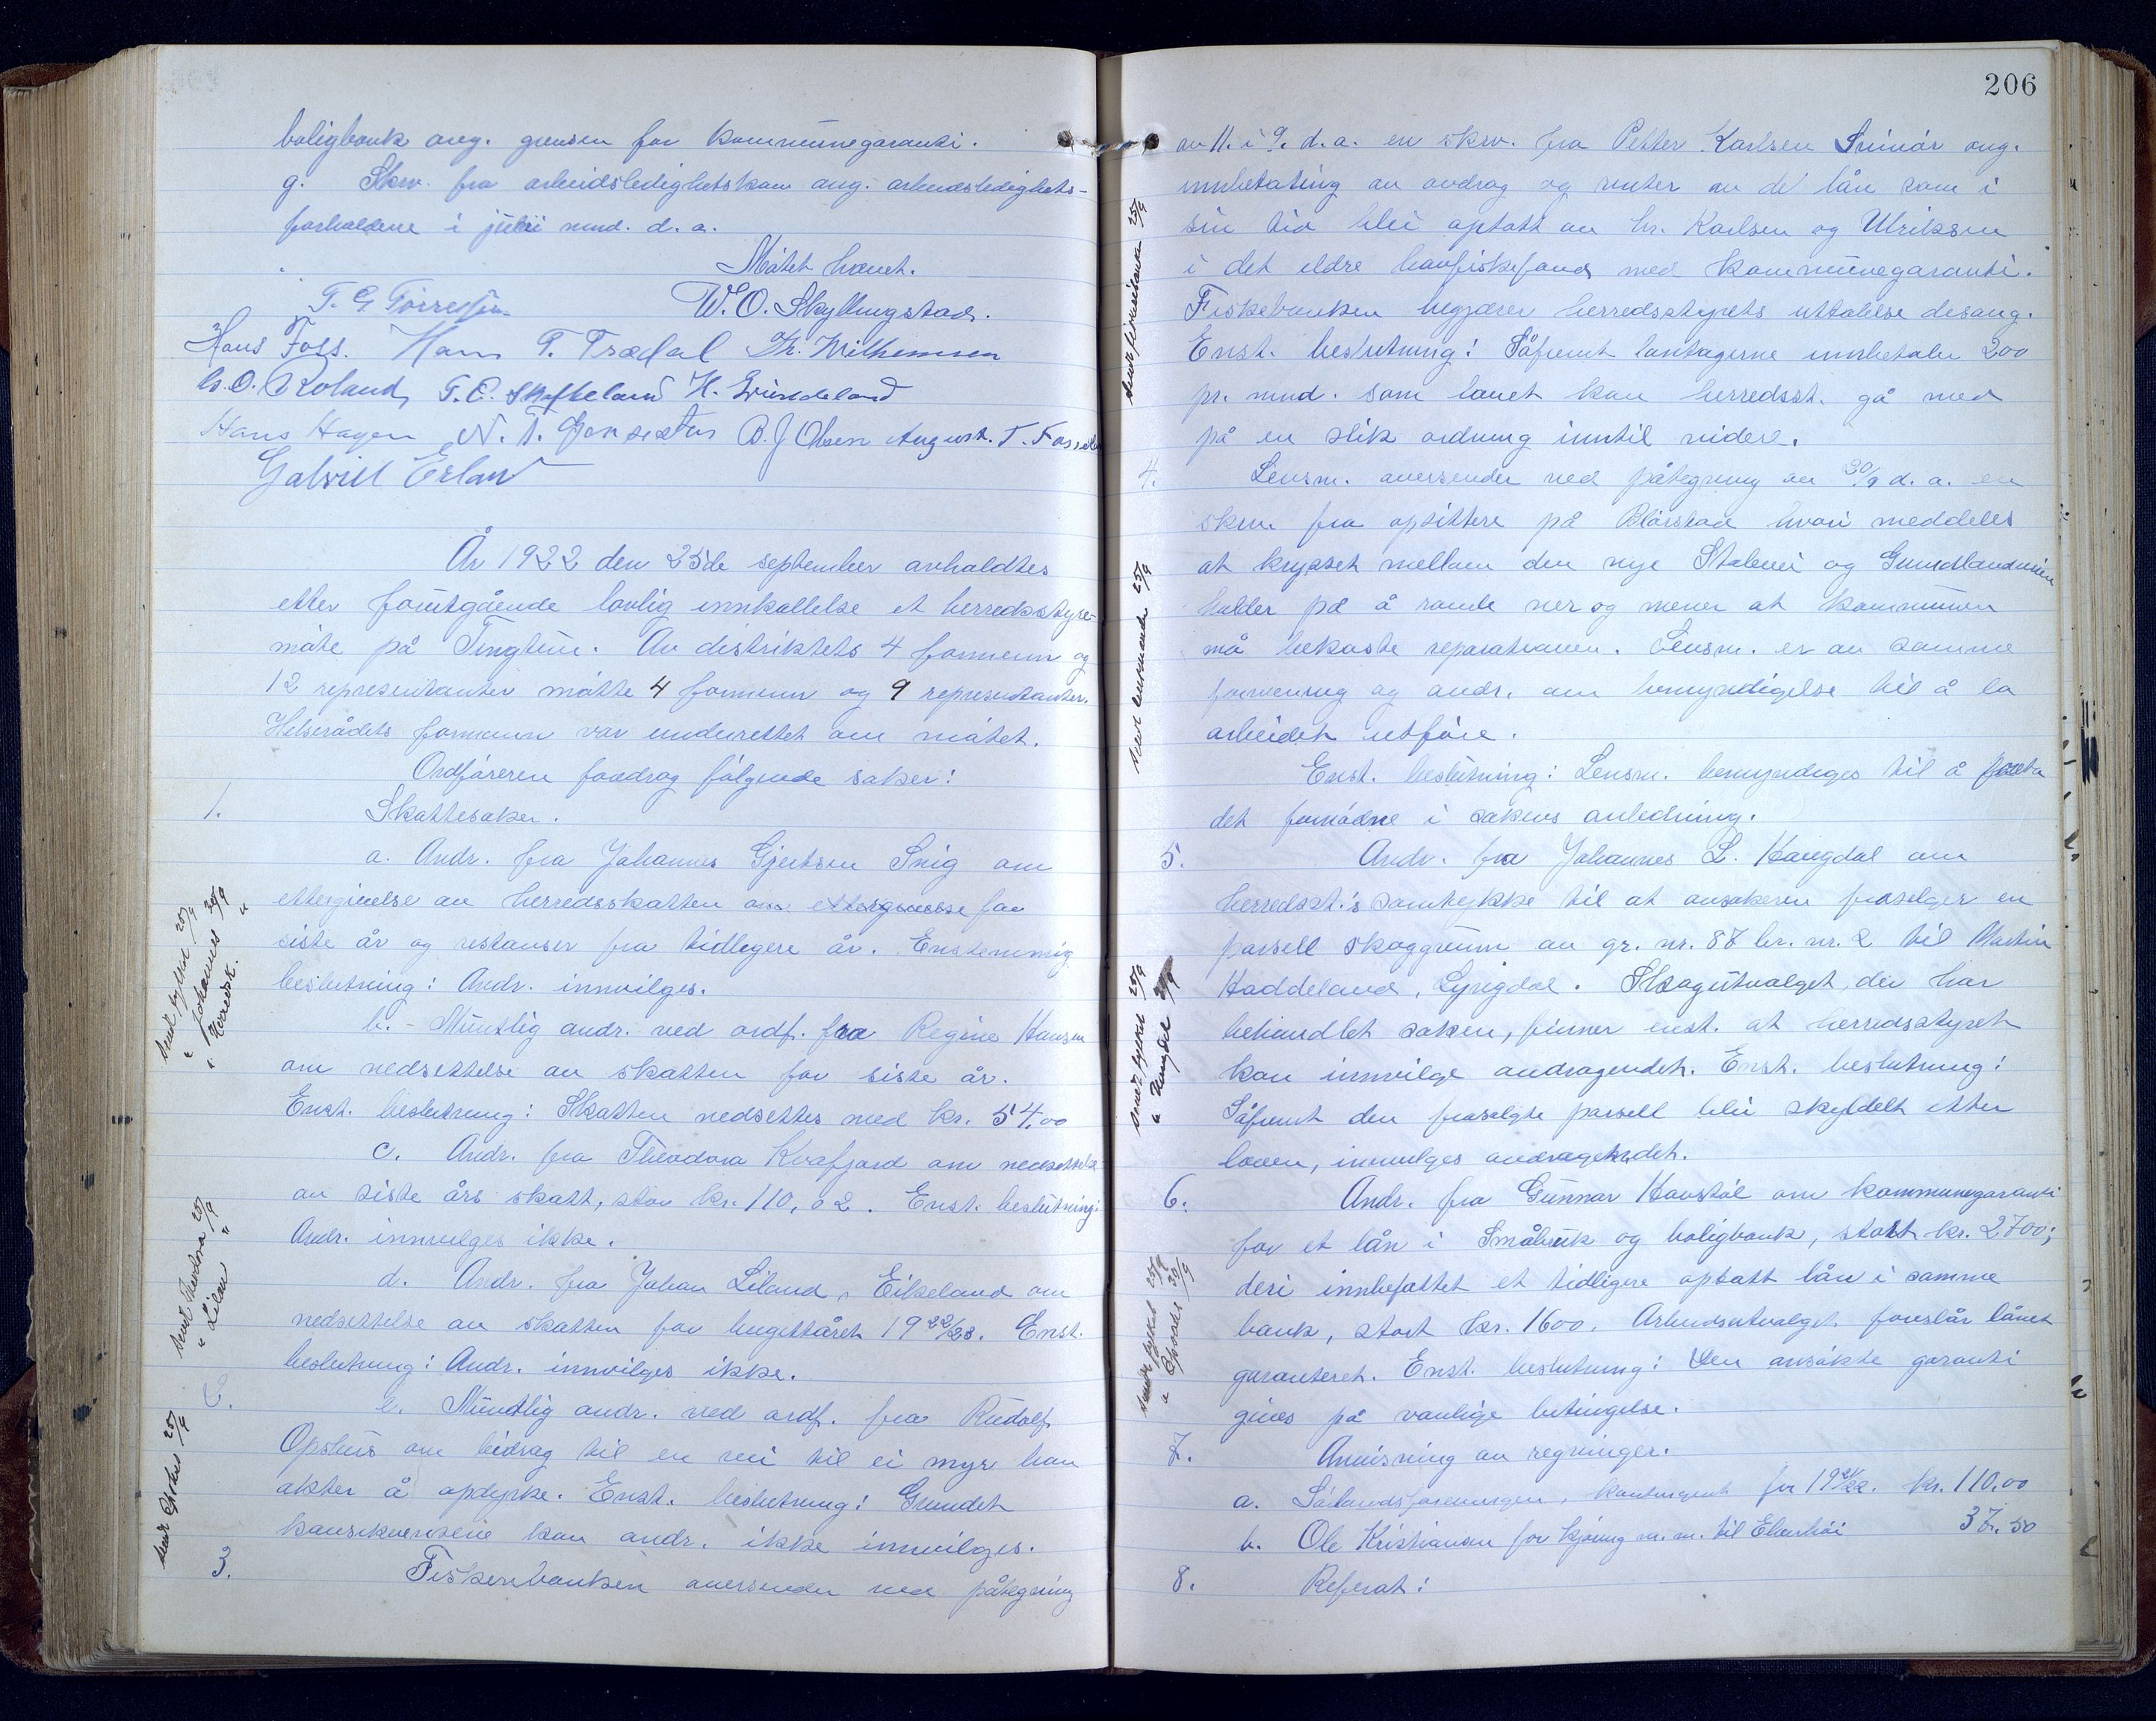 boligbank ang. grensen for kommunegaranti.
g. Skrv. fra arbeidsledighetskom ang. arbeidsledighets-
forholdene i juli mnd. d. a.
Møtet hevet.
T. G. Tørressen W. O. Skyllingstad.
Hans Foss. Hans T. Trædal Th. Wilhemsen
O. Roland, T. E. H.
Hans Hagen N. T. B. J. Olsen August T.
Gabriel Erland
År 1922 den 25de september avholdtes
etter forutgående lovlig innkallelse et herredsstyre-
møte på Tingtun. Av distriktets 4 formenn og
12 representanter møtte 4 formenn og 9 representanter.
Helserådets formann var underrettet om møtet.
Ordføreren foredrog følgende saker:
1. Skattesaker.
a. Andr. fra Johannes Gjertsen Snig om
ettergivelse av herredsskatten om ettergivelse for
siste år og restanser fra tidligere år. Enstemmig
beslutning: Andr. innvilges.
b. - Muntlig andr. ved ordf. fra Regine Hansen
om nedsettelse av skatten for siste år.
Enst. beslutning: Skatten nedsettes med kr. 54.00
c. Andr. fra Theodora Kvafjord om nedsettelse
av siste års skatt, stor kr. 110,02. Enst. beslutning:
Andr. innvilges ikke.
d. Andr. fra Johan Liland, Eikeland om
nedsettelse av skatten for bugettåret 1922/23. Enst.
beslutning: Andr. innvilges ikke.
2. e. Muntlig andr. ved ordf. fra Rudolf
Opshus om bidrag til en vei til ei myr han
akter å opdyrke. Enst. beslutning: Grundet
konsekvensene kan andr. ikke innvilges.
3. Fiskeribanken oversender med påtegning
sendt fylket 25/9
" Johannes 30/9
" Herredsk. "
sendt Theodora 25/9
" Lilan "
sendt Opshus 25/9
206
av 11. i 9. d. a. en skrv. fra Petter Karlsen ang.
innbetaling av avdrag og renter av de lån som i
sin tid blei optatt av hr. Karlsen og Ulriksen
i det eldre havfiskefond med kommunegaranti.
Fiskebanken begjærer herredsstyrets uttalelse desang.
Enst. beslutning: Såfremt lantagerne innbetaler 200
pr. mnd. som lovet kan herredsst. gå med
på en slik ordning inntil videre.
4. Lensm. oversender ved påtegning av 20/9 d. a. en
skrv. fra opsittere på hvori meddeles
at krysset mellem den nye og
holder på å rande ner og mener at kommunen
må bekoste reparationen. Lensm. er av samme
formening og andr. om bemyndigelse til å la
arbeidet utføre.
Enst. beslutning: Lensm. bemyndiges til å foreta
det fornødne i sakens anledning.
5. Andr. fra Johannes L. Haugdal om
herredsst.'s samtykke til at ansøkeren fraselger en
parsell skoggrunn av gr. nr. 87 br. nr. 2 til Martin
Haddeland, Lyngdal. Skogutvalget, der har
behandlet saken, finner enst. at herredsstyret
kan innvilge andragendet. Enst. beslutning:
Såfremt den fraselgte parsell blir skyldelt etter
loven, innvilges andragendet.
6. Andr. fra Gunnar Haustøl om kommunegaranti
for et lån i Småbruk og boligbank, stort kr. 2700;
deri innbefattet et tidligere optatt lån i samme
bank, stort kr. 1600. Arbeidsutvalget foreslår lånet
garanteret. Enst. beslutning: Den ansøkte garanti
gives på vanlige betingelse.
7. Anvisning av regninger.
a. Sørlandsforeningen, kontingent for 1921/22. kr. 110.00
b. Ole Kristiansen for kjøring m. m. til 37.50
8. Referat:
sendt fiskeribanken 25/9
sendt lensmannen 25/9
sendt fylket 25/9
" Haugdal 30/9
sendt fylket 25/9